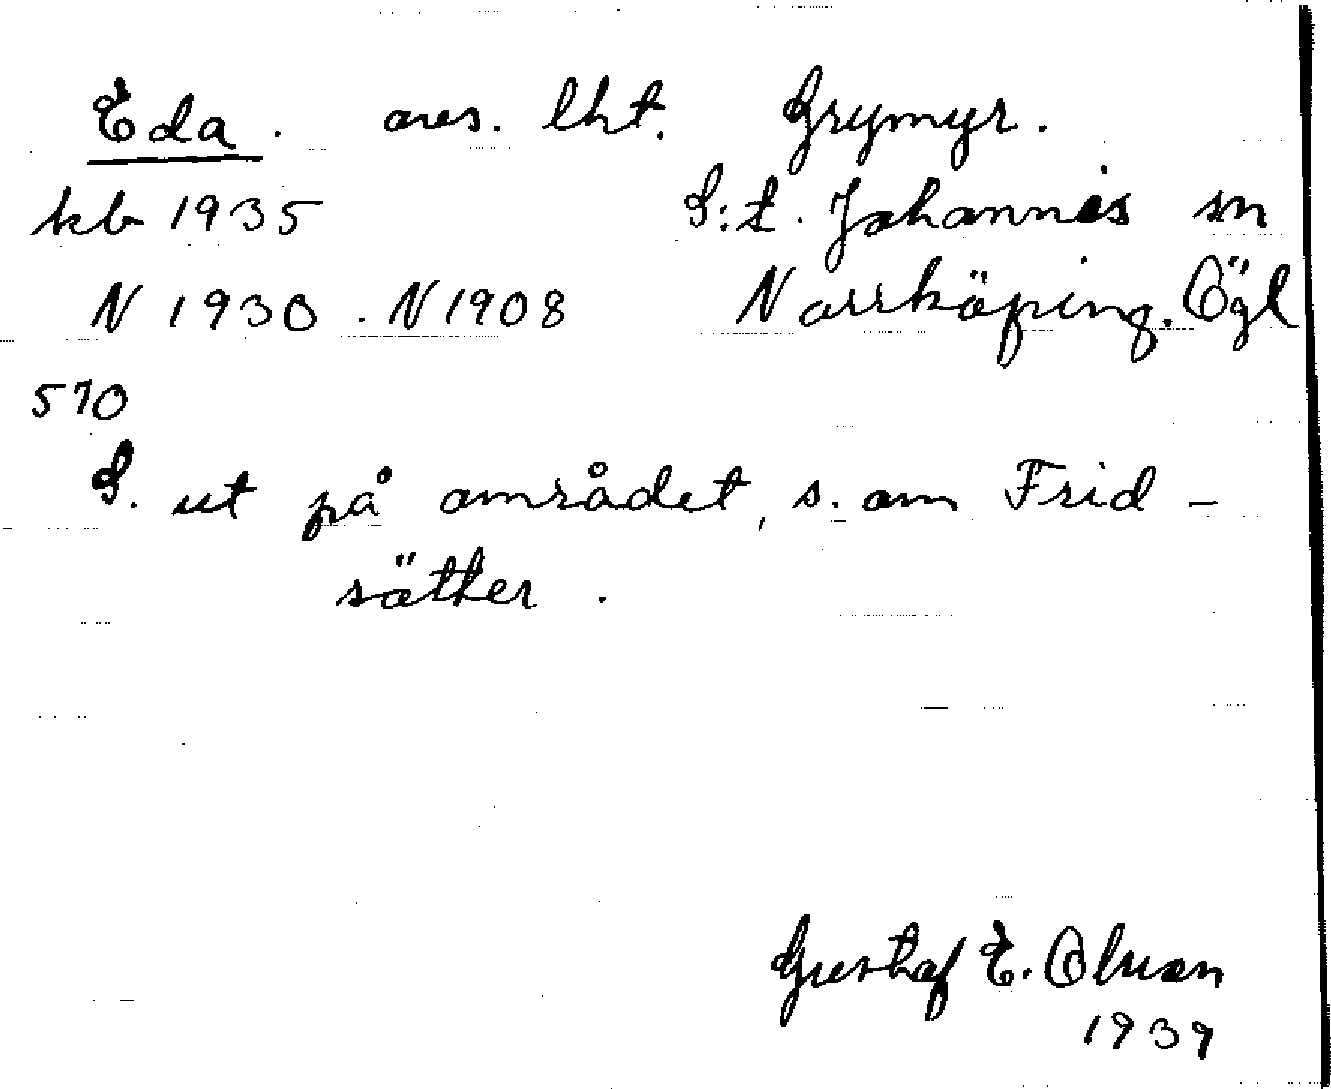 Eda. avs. lht. Grymyr.
kb 1935 S:t. Johannes sn
N 1930. N 1908 Norrköping. Ögl
570
S. ut på området, s. om Frid-
säther.
Gustaf E. Olsson
1939